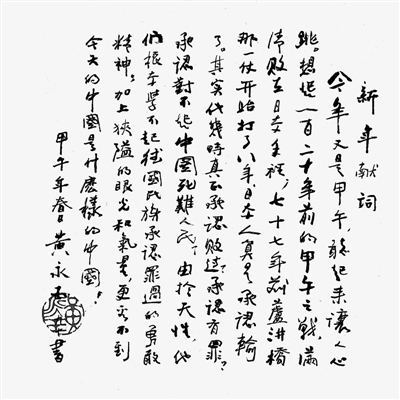 新年献詞
今年又是甲午,說起来讓人心
跳。想起一百二十年前的甲午之戰,滿
清敗在日本手裡,七十七年前蘆溝橋
那一仗开始打了八年,日本人算是承認輸
了。其实他幾時真正承認敗过?承認有罪?
承認對不起中國死難人民?由於天性,他
们根本學不起德國民族承認罪過的勇敢
精神。加上狹隘的眼光和氣量,更看不到
今天的中國是什麽樣的中國!
甲午年春日黃永玉書